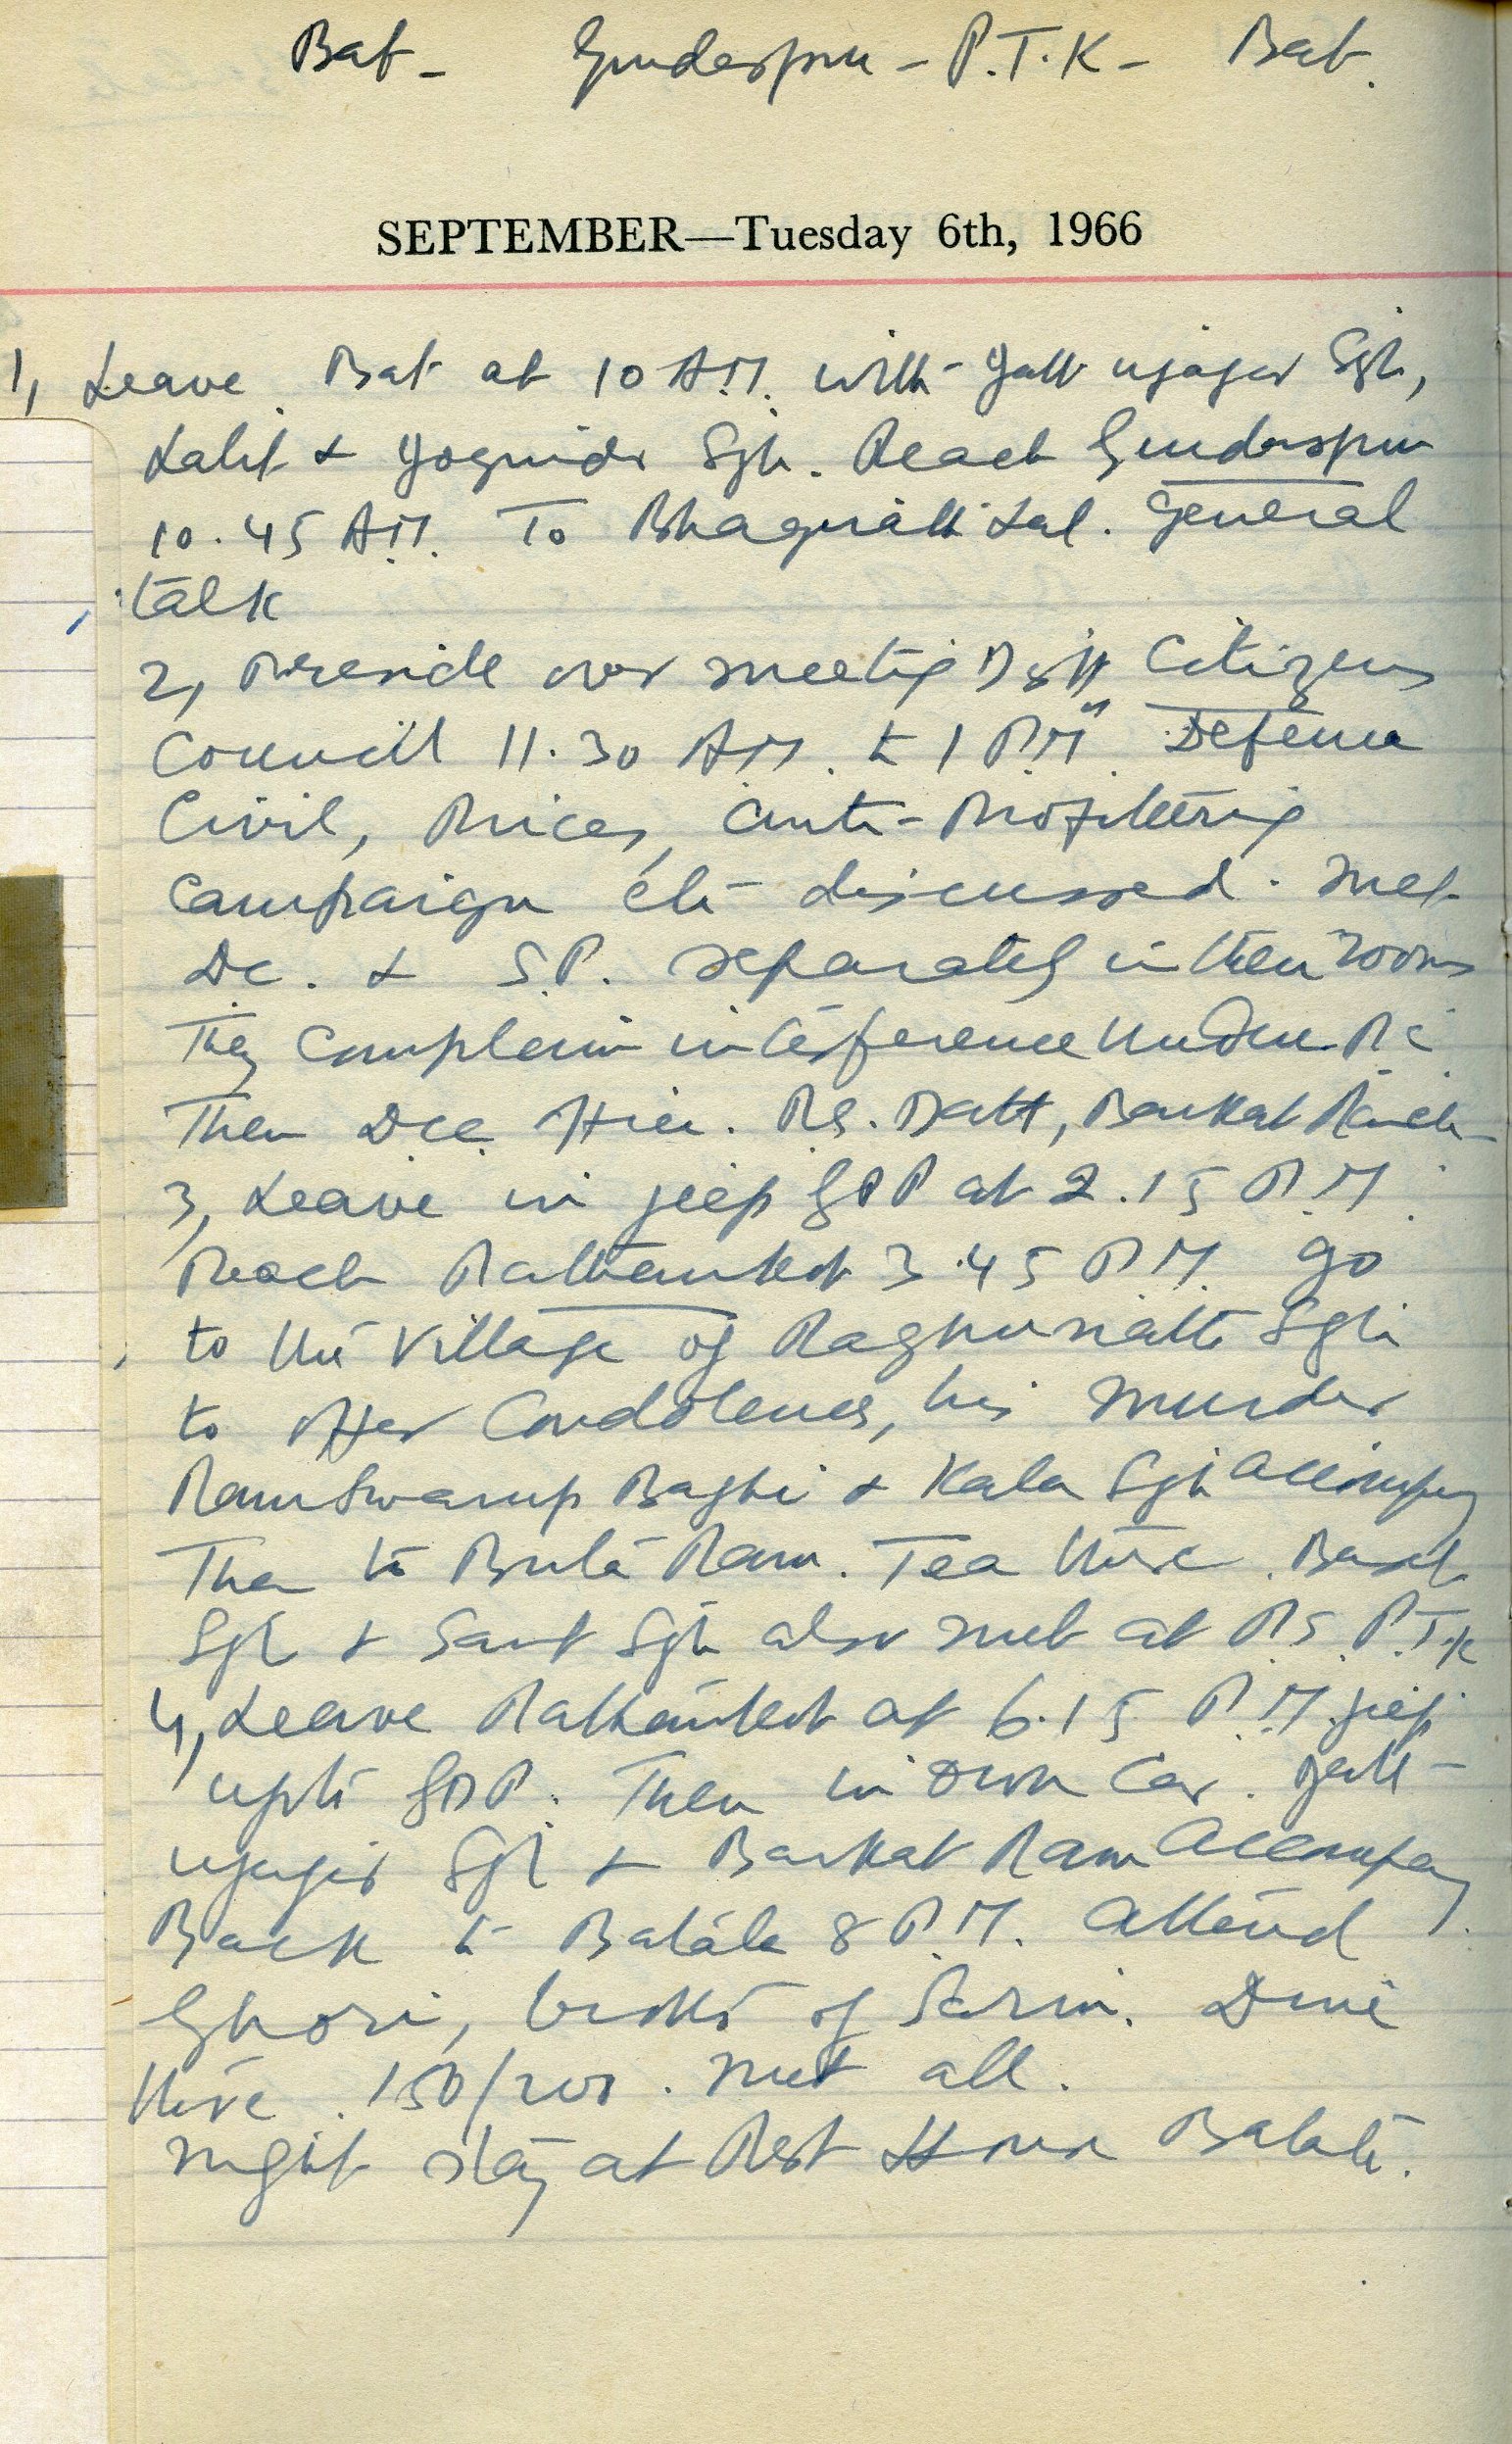 Bat - Gurdaspur - P.T.K - Bat.
SEPTEMBER—Tuesday 6th, 1966
1, Leave Bat at 10 A.M. with Sgh,
Lalit & Sgh. Reach Gurdaspur
10.45 A.M. To Lal. General
talk
2, Preside over meeting Citizens
Council 11.30 A.M. to 1 P.M. Defence
Civil, Prices, Anti-Profiteering
Campaign etc discussed. Met
D.C. & S.P. separately in their rooms
They complain interference
Then Datt, Barkat Ram
3, Leave in jeep GDP at 2.15 P.M.
Reach Pathankot 3.45 P.M. go
to the village of Raghunath Sgh
to offer Condolences, his murder
Ram Swarup Baghi & Kala Sgh accompany
Then to Ram. Tea there.
Sgh & Sant Sgh also met at P.T.K
4, Leave Pathankot at 6.15 P.M. jeep
upto GDP. Then in own car.
Sgh & Barkat Ram accompany
Back to Batala 8 P.M. Attend
of Sarin. Dine
there. 150/200. Met all.
Night stay at Rest House Batala.